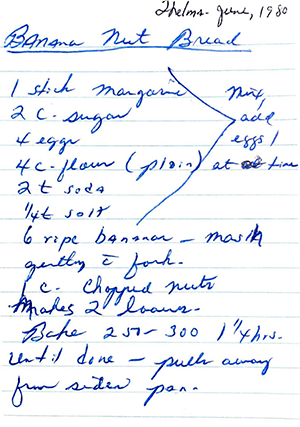 Thelma - June, 1980
Banana Nut Bread
1 stick margarine
2 c. sugar
4 eggs
4 c. flour (plain)
2 t soda
1/4 t salt
Mix,
add
eggs 1
at a time
6 ripe bananas - mash
gently c̄ fork.
1 c. chopped nuts
Makes 2 loaves.
Bake 250 - 300 1 1/4 hrs.
Until done - pulls away
from sides pan.